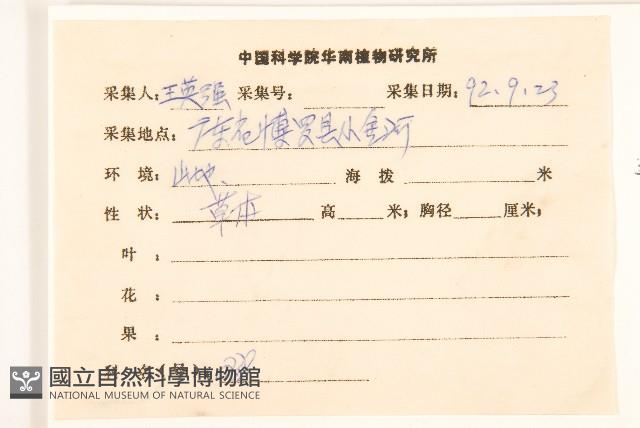 中国科学院华南植物研究所
采集人：王英强 采集号： 采集日期：92.9.23
采集地点：广东省博罗县小金河
环 境：山地、 海 拨 米
性 状：草本 高 米；胸径 厘米；
叶 ：
花 ：
果 ：
國立自然科學博物館
NATIONAL MUSEUM OF NATURAL SCIENCE